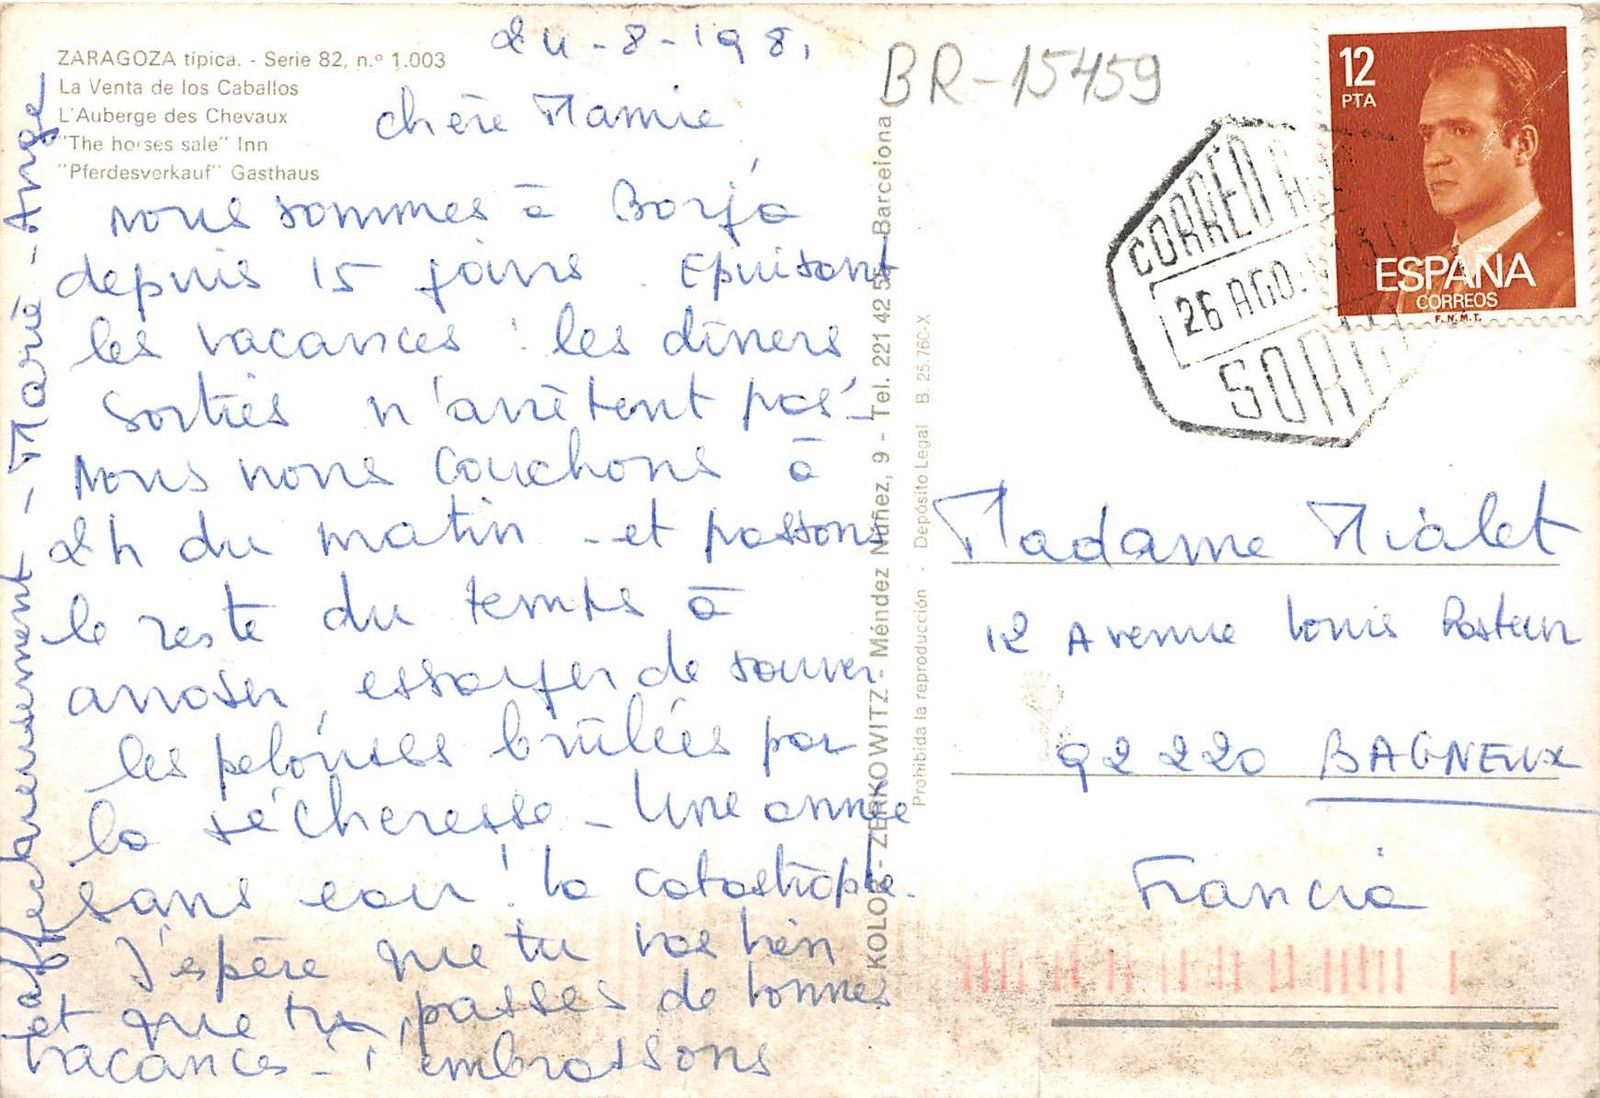 ZARAGOZA típica. - Serie 82, n.º 1.003
La Venta de los Caballos
L'Auberge des Chevaux
"The horses sale" Inn
"Pferdesverkauf" Gasthaus
24-8-1981
chère Mamie
nous sommes à Borja
depuis 15 jours. Epuisant
les vacances : les diners
sorties n'arrêtent pas -
Nous nous couchons à
2h du matin - et passons
le reste du temps à
arroser, essayer de sauver
les pelouses brûlées par
la sécheresse - Une année
sans eau ! la catastrophe.
J'espère que tu vas bien
et que tu passes de bonnes
vacances - t'embrassons
affectueusement - Marie-Ange
KOLOR - ZERKOWITZ - Méndez Núñez, 9 - Tel. 221 42 55 Barcelona
Prohibida la reproducción - Depósito Legal B. 25.760-X
BR-15459
12
PTA
ESPAÑA
CORREOS
F.N.M.T.
CORREO
26 AGO.
SORIA
Madame Mialet
12 Avenue Louis Pasteur
92220 BAGNEUX
Francia